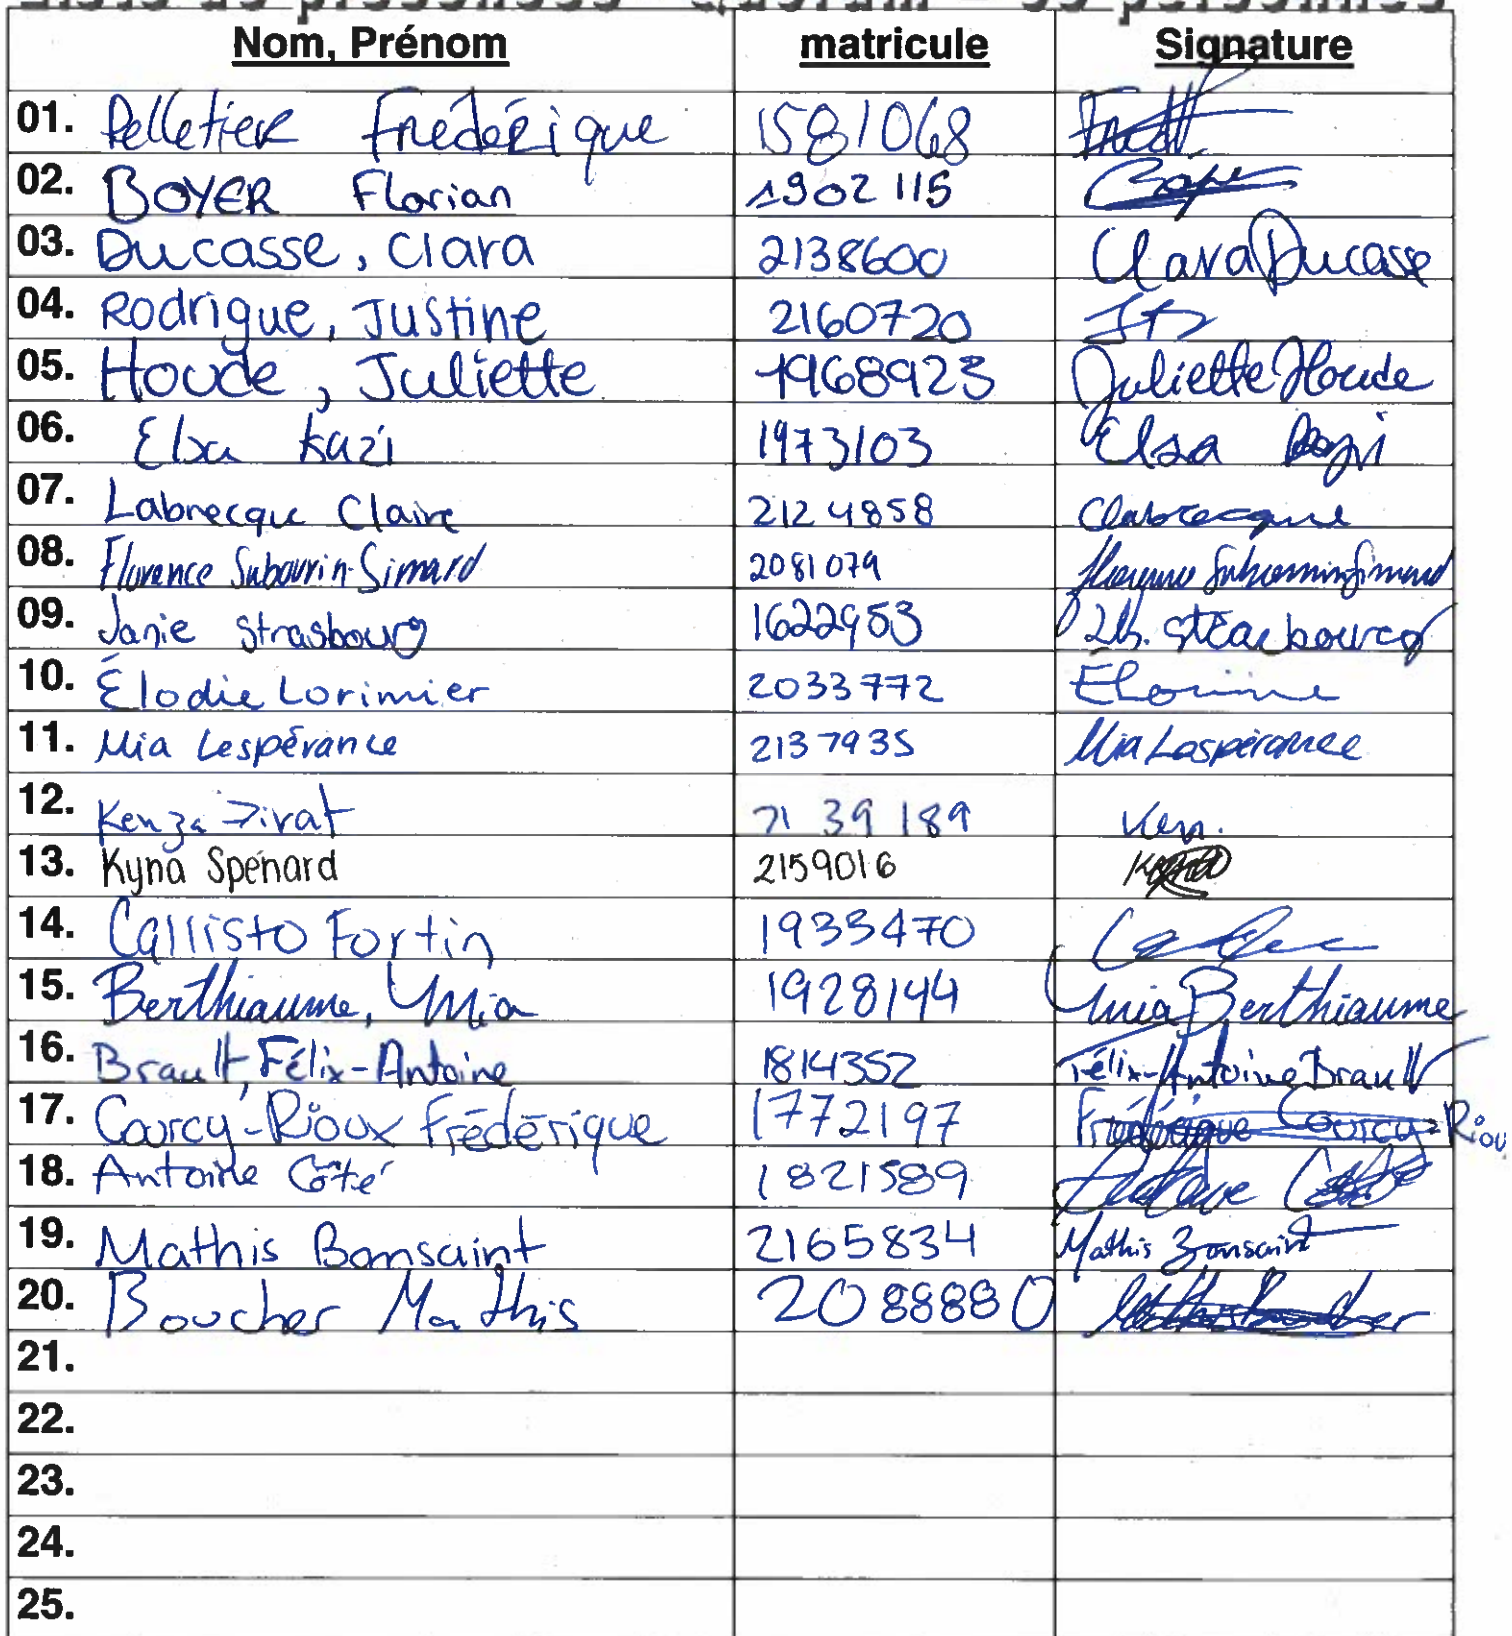 Liste de présences - Quorum - 30 personnes
Nom, Prénom matricule Signature
01. Pelletier Frédérique 1581068
02. BOYER Florian 1902115
03. Ducasse, Clara 2138600 Clara Ducasse
04. Rodrigue, Justine 2160720
05. Houde, Juliette 1968923 Juliette Houde
06. Elsa Kazi 1973103 Elsa Kazi
07. Labrecque Claire 2124858 Clabrecque
08. Florence Sabourin-Simard 2081079 Florence Sabourin Simard
09. Janie Strasbourg 1622953 Strasbourg
10. Élodie Lorimier 2033772
11. Mia Lespérance 2137935 Mia Lespérance
12. Kenza 2139189 Ken.
13. Kyna Spénard 2159016
14. Callisto Fortin 1933470
15. Berthiaume, Ymia 1928144 Ymia Berthiaume
16. Brault, Félix-Antoine 1814352 Félix-Antoine Brault
17. Courcy-Rioux Frédérique 1772197 Frédérique Courcy-Riou
18. Antoine Côté 1821589
19. Mathis Bonsaint 2165834 Mathis Bonsaint
20. Boucher Mathis 2088880 Mathis Boucher
21.
22.
23.
24.
25.